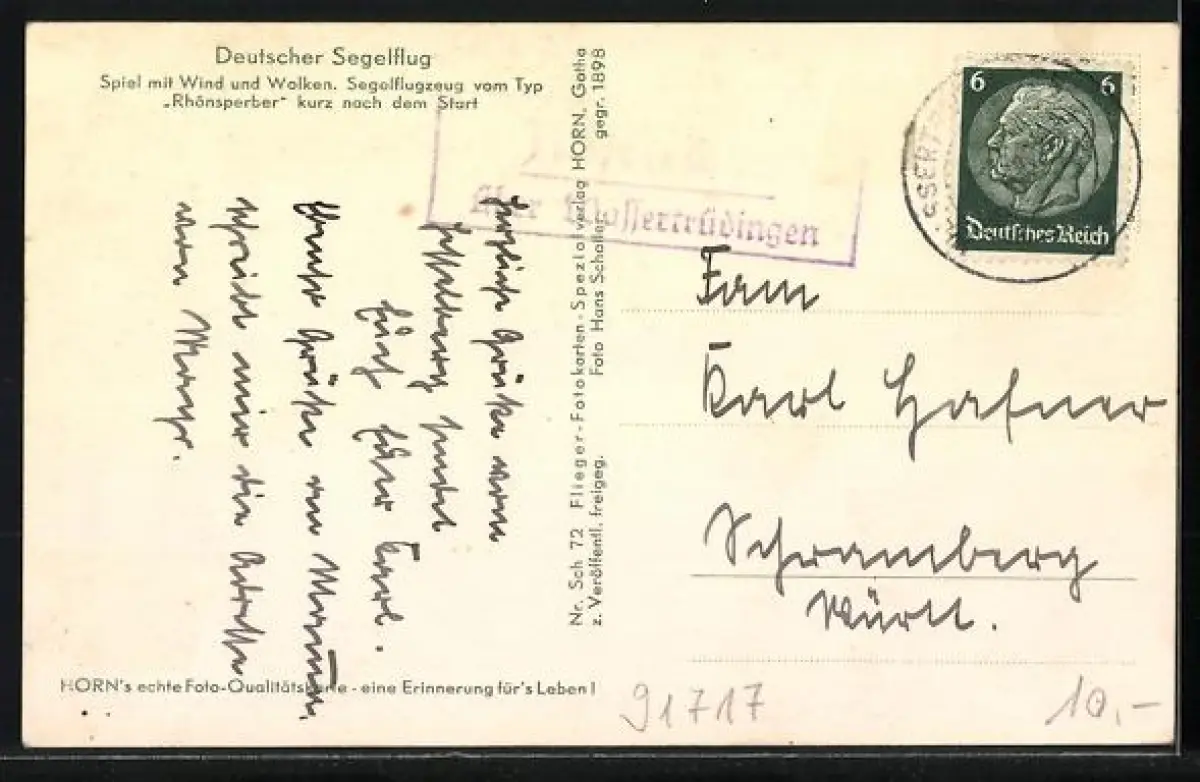 Deutscher Segelflug
Spiel mit Wind und Wolken. Segelflugzeug vom Typ
„Rhönsperber“ kurz nach dem Start
Herzliche Grüße vom
sendet
Euch Euer Karl.
Grüße an Maman,
schreibt mir die Adresse
vom Mayr.
HORN's echte Foto-Qualitätskarte - eine Erinnerung für's Leben!
Nr. Sch 72 Flieger-Fotokarten-Spezialverlag HORN, Gotha
z. Veröffentl. freigeg. Foto Hans Schaller gegr. 1898
über Wassertrüdingen
6 6
Deutsches Reich
Fam
Karl Hafner
Schramberg
Württ.
91717
10,-